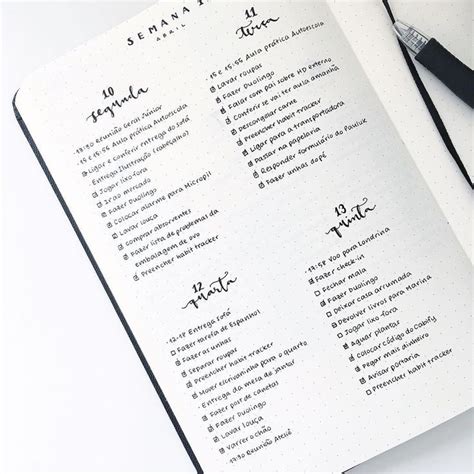 SEMANA
ABRIL
10
segunda
· 17:30 Reunião Geral Júnior
· 15 e 15:55 Aula prática Autorscola
Ligar e conferir entrega do sofá
Entrega Ilustração (rabejano)
Jogar lixo fora
Ir ao mercado
Fazer Duolingo
Colocar alarme para Micropil
Lavar louça
Comprar absorventes
Fazer lista de problemas da
embalagem de ovo
Preencher habit tracker
11
terça
· 15 e 15:55 Aula prática Autorscola
Lavar roupas
Fazer Duolingo
Falar com pai sobre HD externo
Conferir se vai ter aula amanhã
Descongelar carne
Preencher habit tracker
Ligar para a transportadora
Passar na papelaria
Responder formulário do
Fazer unhas dopé
12
quarta
Entrega sofá
Fazer tarefa de Espanhol
Fazer as unhas
Separar roupas
Preencher habit tracker
Mover escrivaninha para o quarto
Entrega da mesa de jantar
Fazer port de canetas
Lavar louça
Varrer o chão
· 17:30 Reunião Ateliê
13
quinta
· 17:58 Voo para Londrina
Fazer check-in
Fechar mala
Fazer Duolingo
Deixar casa arrumada
Devolver livros para Marina
Jogar lixo fora
Aguar plantas
Colocar código do Cabify
Pegar mais dinheiro
Avisar portaria
Preencher habit tracker